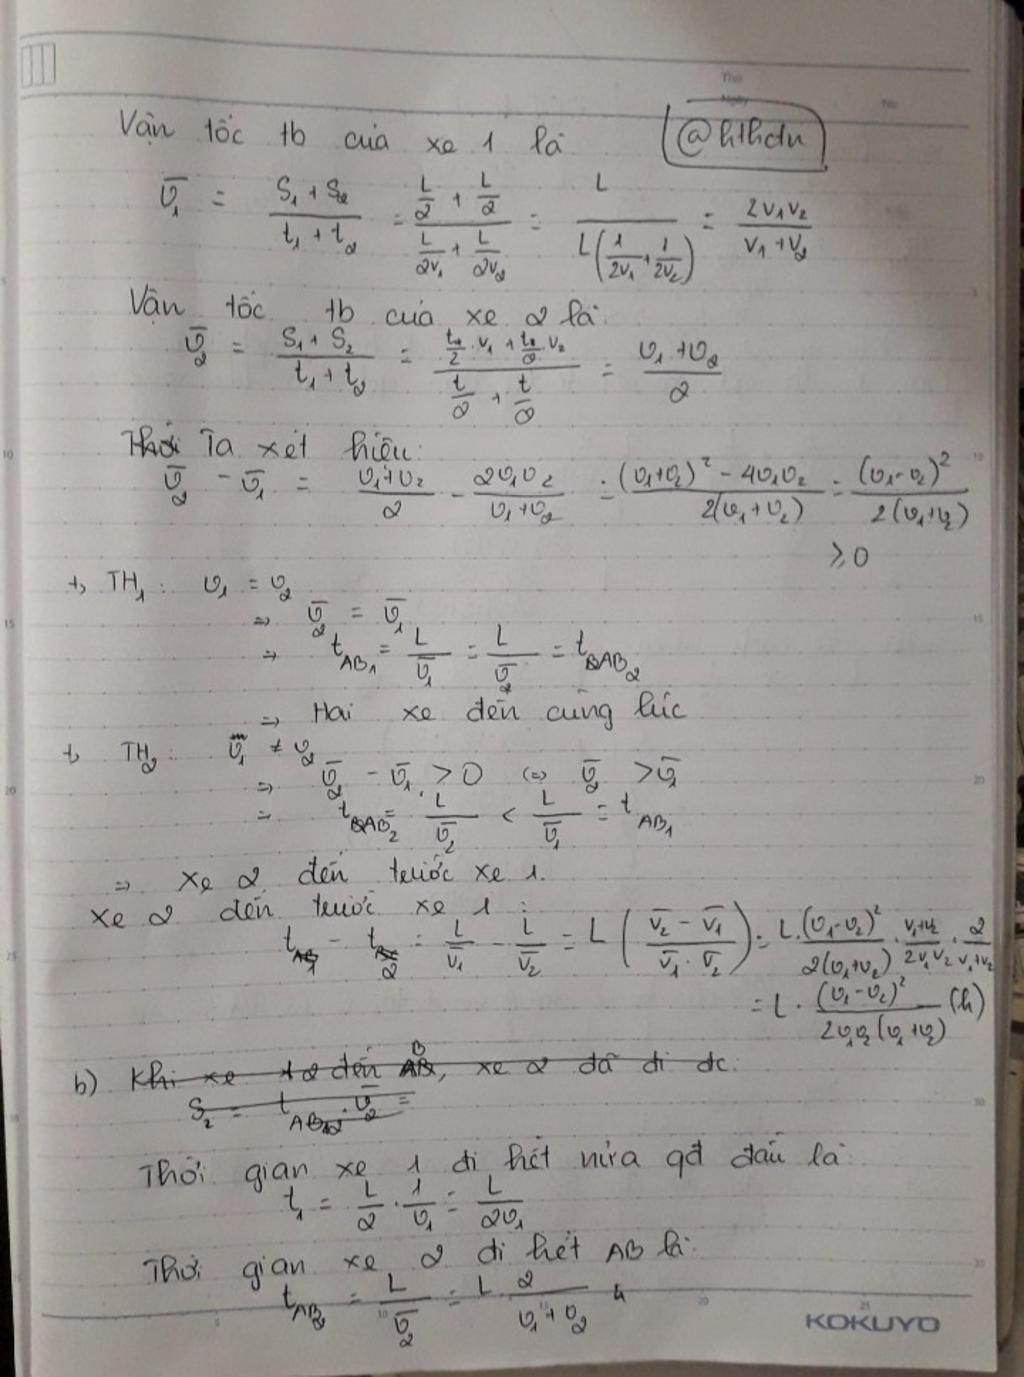 Thứ
Ngày
No
@hthdn
Vận tốc tb của xe 1 là
v̄₁ = (S₁ + S₂)/(t₁ + t₂) = (L/2 + L/2)/(L/2v₁ + L/2v₂) = L/(L(1/2v₁ + 1/2v₂)) = 2v₁v₂/(v₁ + v₂)
Vận tốc tb của xe 2 là:
v̄₂ = (S₁ + S₂)/(t₁ + t₂) = (t/2 · v₁ + t/2 · v₂)/(t/2 + t/2) = (v₁ + v₂)/2
Ta xét hiệu:
v̄₂ - v̄₁ = (v₁ + v₂)/2 - 2v₁v₂/(v₁ + v₂) = ((v₁ + v₂)² - 4v₁v₂)/(2(v₁ + v₂)) = (v₁ - v₂)²/(2(v₁ + v₂))
≥ 0
+, TH₁: v₁ = v₂
⇒ v̄₂ = v̄₁
⇒ t_AB₁ = L/v̄₁ = L/v̄₂ = t_AB₂
⇒ Hai xe đến cùng lúc
+ TH₂: v₁ ≠ v₂
⇒ v̄₂ - v̄₁ > 0 ⇔ v̄₂ > v̄₁
⇒ t_AB₂ = L/v̄₂ < L/v̄₁ = t_AB₁
⇒ xe 2 đến trước xe 1.
xe 2 đến trước xe 1:
t₁ - t₂ = L/v̄₁ - L/v̄₂ = L((v̄₂ - v̄₁)/(v̄₁ · v̄₂)) = L · (v₁ - v₂)²/(2(v₁ + v₂)) · (v₁ + v₂)/(2v₁v₂) · 2/(v₁ + v₂)
= L · (v₁ - v₂)²/(2v₁v₂(v₁ + v₂)) (h)
b) Khi xe 2 đến B, xe 2 đã đi đc:
S₂ = t_AB₂ · v̄₂ =
Thời gian xe 1 đi hết nửa qđ đầu là:
t₁ = L/2 · 1/v₁ = L/2v₁
Thời gian xe 2 đi hết AB là:
t_AB₂ = L/v̄₂ = L · 2/(v₁ + v₂) h
KOKUYO